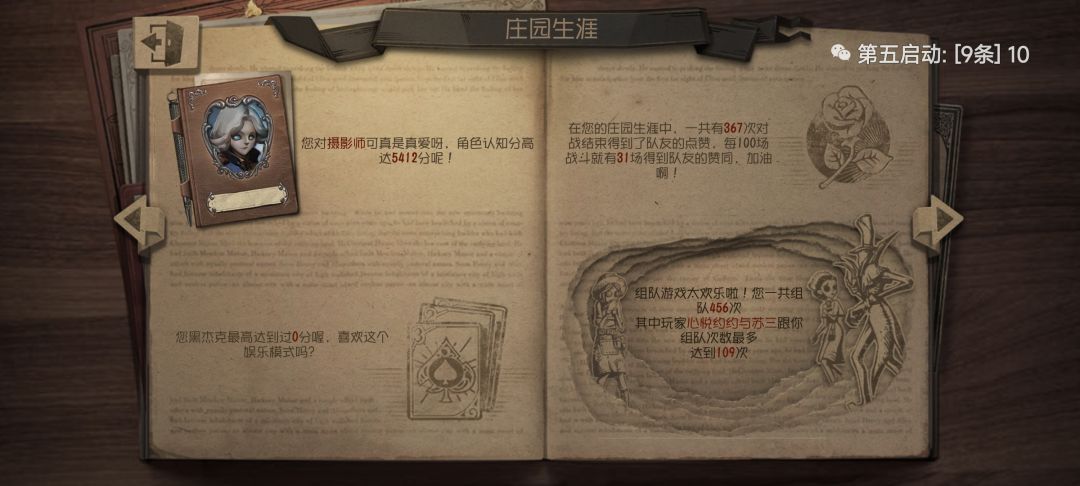 庄园生涯
第五启动: [9条] 10
您对摄影师可真是真爱呀，角色认知分高
达5412分呢！
您黑杰克最高达到过0分喔，喜欢这个
娱乐模式吗?
在您的庄园生涯中，一共有367次对
战结束得到了队友的点赞，每100场
战斗就有31场得到队友的赞同，加油
啊！
组队游戏太欢乐啦！您一共组
队456次
其中玩家心悦约约与苏三跟你
组队次数最多
达到109次